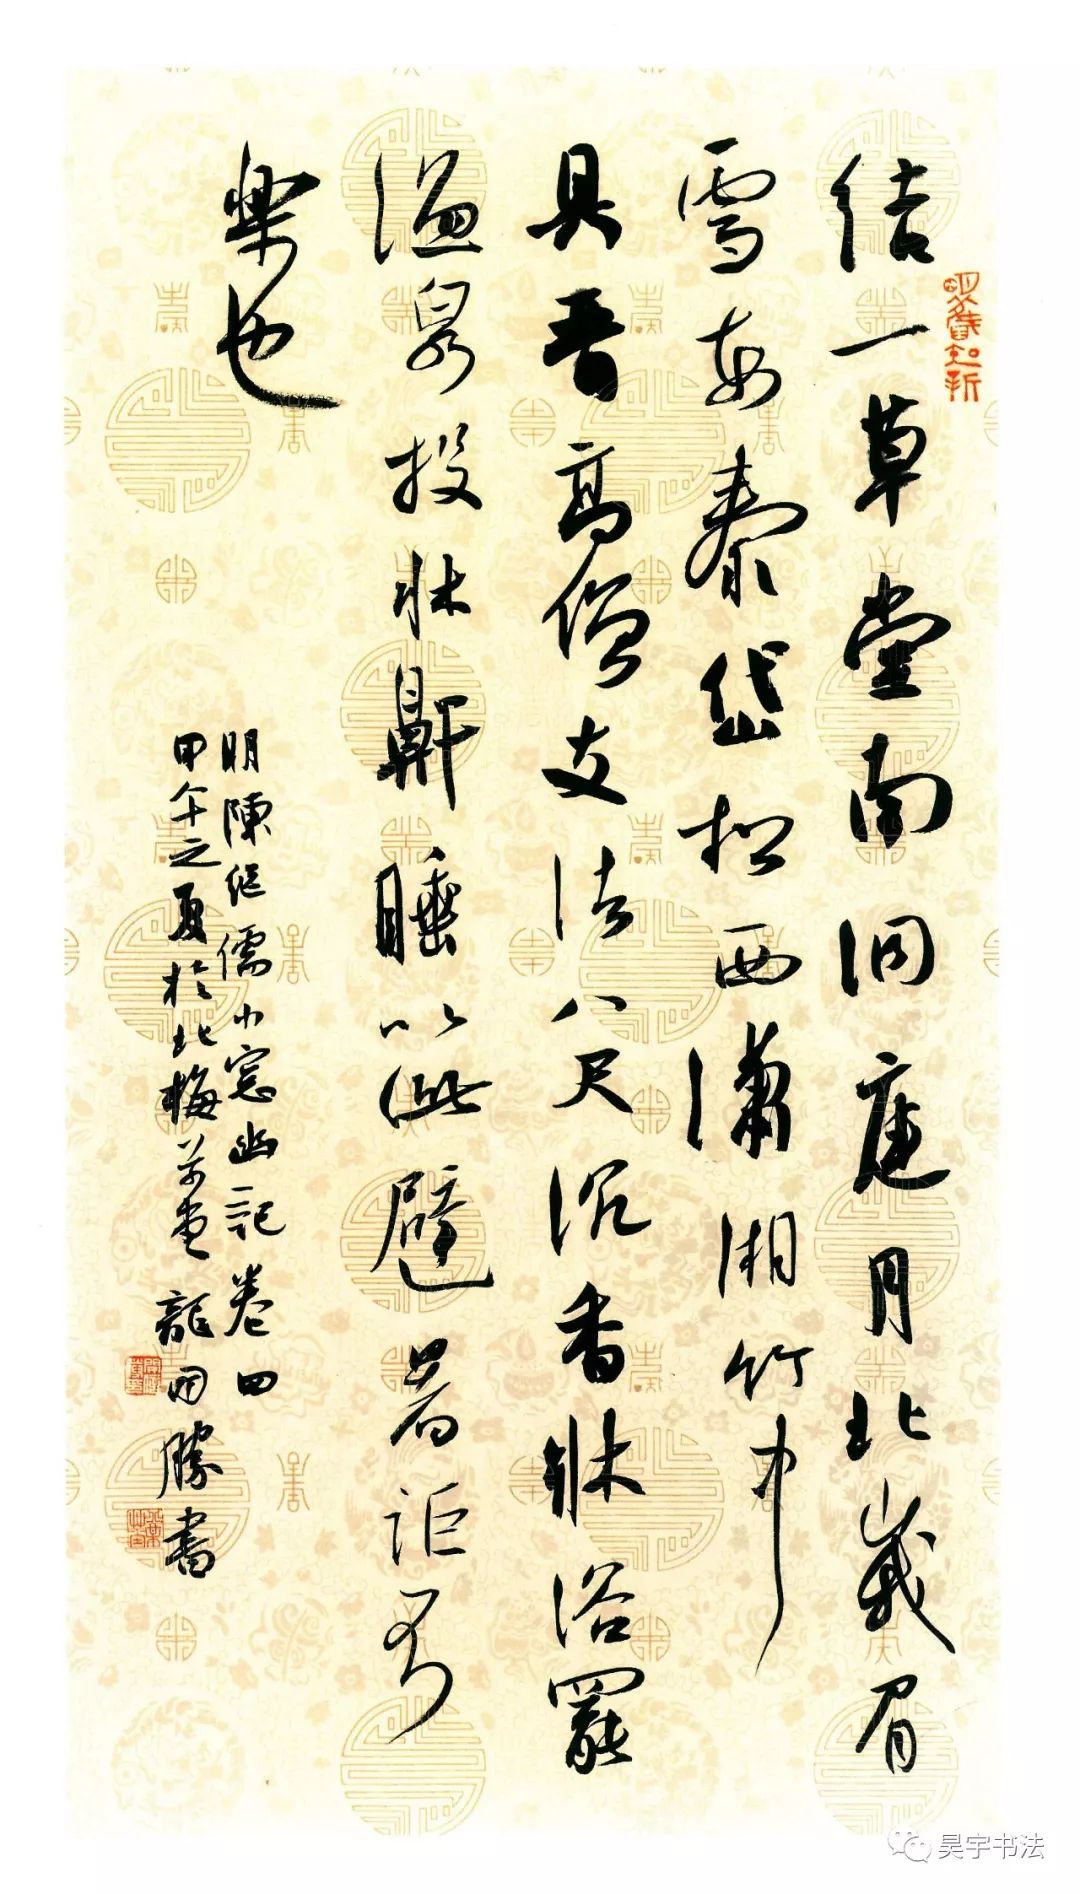 結一草堂南洞庭月北峩眉
雪東泰岱松西瀟湘竹中
具晉高僧支法八尺沉香牀浴罷
温泉投牀鼾睡以此避暑詎不
樂也
明陳继儒小窓幽記卷四
甲午之夏於北梅龍開勝書
昊宇书法